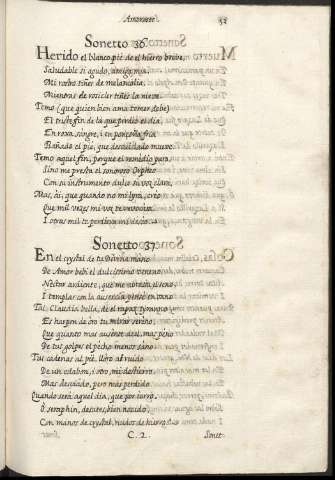 Amorosos.
Sonetto 36
Herido el blanco pie de el hierro breve,
Saludable si agudo, amiga mia,
Mi rostro tiñes de melancolia,
Mientras de rosicler tiñes la nieve.
Temo (que quien bien ama temer debe)
El triste fin de la que perdio el dia,
En roxa sangre, i en ponçoña fria
Bañado el pie, que descuidado mueve.
Temo aquel fin, porque el remedio para,
Sino me presta el sonoroso Orpheo
Con su instrumento dulce su voz clara,
Mas, ai, que quando no mi lyra, creo
Que mil vezes mi voz te
I otras mil te perdiera mi desseo.
Sonetto 37
En el crystal de tu Divina mano
De Amor bebi el dulcissimo veneno,
Nectar ardiente, que me abrasa el seno,
I templar con la ausencia pensè en vano
Tal, Claudia bella, de el rapaz tyranno
Es harpon de oro tu mirar sereno,
Que quanto mas ausente de el, mas peno
De sus golpes el pecho menos sano
Tus cadenas al pie, lloro al ruido
De un eslabon, i otro, mi destierro,
Mas desviado, pero mas perdido
Quando serà aquel dia, que por yerro,
O seraphin, desates, bien nacido,
Con manos de crystal, nudos de hierro
C. 2.
Sonet